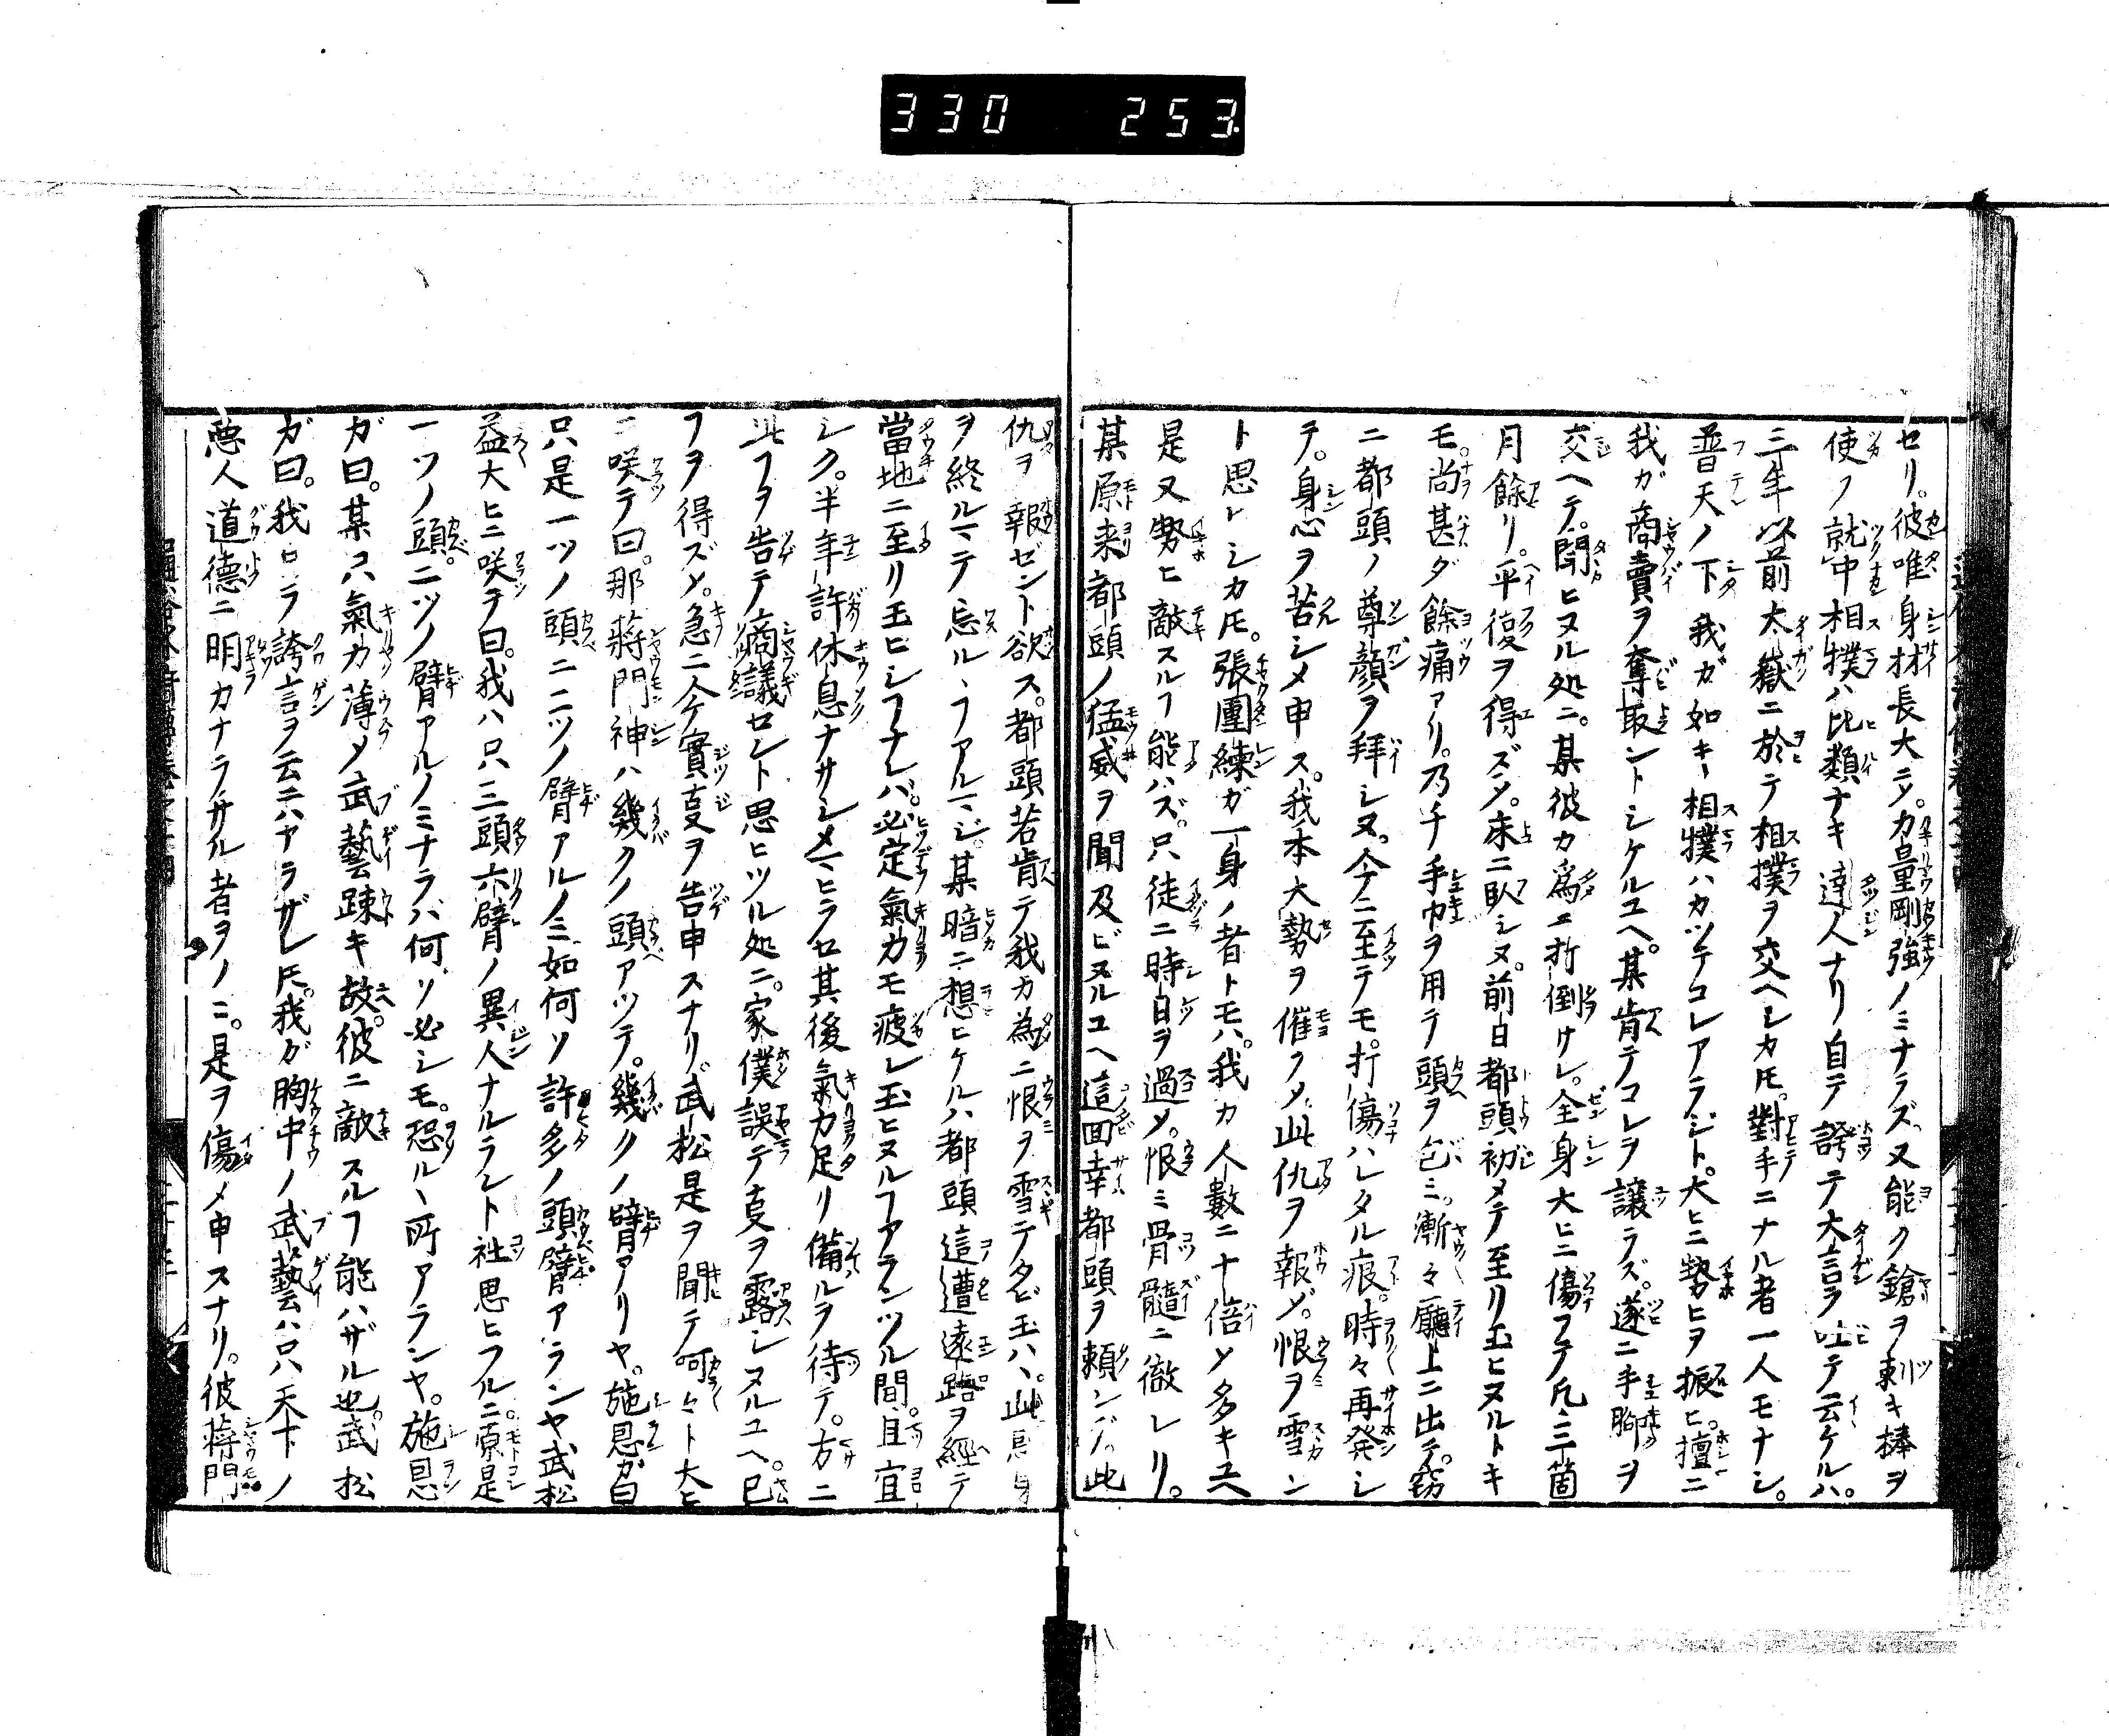 330 253
セリ。彼唯身材長大ニメ。力量剛強ノミナラズ。又能ク鎗ヲ刺キ棒ヲ
使フ就中相撲ハ比類ナキ達人ナリ自テ誇テ大言ヲ吐テ云ケルハ。
三年以前太嶽ニ於テ相撲ヲ交ヘシカ𪜈。對手ニナル者一人モナシ。
普天ノ下我ガ如キ相撲ハカツテコレアラジト。大ヒニ勢ヒヲ振ヒ。擅ニ
我ガ商賣ヲ奪取ントシケルユヘ。某肯テコレヲ讓ラズ。遂ニ手脚ヲ
交ヘテ。鬪ヒヌル処ニ。某彼カ爲ニ打倒サレ。全身大ヒニ傷フテ凡三箇
月餘リ。平復ヲ得ズメ。床ニ臥シヌ。前日都頭初メテ至リ玉ヒヌルトキ
モ。尚甚ダ餘痛アリ。乃チ手巾ヲ用テ頭ヲ包ミ。漸々廳上ニ出テ。窃
ニ都頭ノ尊顔ヲ拜シヌ。今ニ至テモ。打傷ハレタル痕。時々再発シ
テ。身心ヲ苦シメ申ス。我本大勢ヲ催フメ。此仇ヲ報ゾ。恨ヲ雪ン
ト思ヒシカ𪜈。張團練ガ一身ノ者トモハ。我カ人數ニ十倍メ多キユヘ
是又勢ヒ敵スルヿ能ハズ。只徒ニ時日ヲ過メ。恨ミ骨髓ニ徹レリ。
某原来都頭ノ猛威ヲ聞及ビヌルユヘ這回幸都頭ヲ頼ンデ。此
仇ヲ報ゼント欲ス。都頭若肯テ我カ為ニ恨ヲ雪テタビ玉ハヾ。此身
ヲ終ルマテ忘ルヽヿアルマジ。某暗ニ想ヒケルハ都頭這遭遠路ヲ經テ
當地ニ至リ玉ヒシヿナレバ。必定氣力モ疲レ玉ヒヌルヿアランツル間。且宜
シク。半年許休息ナサシメマヒラセ其後氣力足リ備ルヲ待テ。方ニ
此ヿヲ告テ商議セント思ヒツル処ニ。家僕誤テ㕝ヲ露シヌルユヘ。已
ヿヲ得ズメ。急ニ今實㕝ヲ告申スナリ。武松是ヲ聞テ呵々ト大ヒ
ニ咲テ曰。那蒋門神ハ幾クノ頭アツテ。幾クノ臂アリヤ。施恩ガ曰
只是一ツノ頭ニ二ツノ臂アルノミ如何ソ許多ノ頭臂アランヤ武松
益大ヒニ咲テ曰。我ハ只三頭六臂ノ異人ナルラント社思ヒフルニ。原是
一ツノ頭。二ツノ臂アルノミナラバ何ソ必シモ。恐ルヽ所アランヤ。施恩
ガ曰。某只氣力薄メ武藝疎キ故ニ。彼ニ敵スルヿ能ハザル也。武松
ガ曰。我口ラ誇言ヲ云ニハアラザレ𪜈。我ガ胸中ノ武藝ハ只天下ノ
悪人道德ニ明カナラサル者ヲノミ。是ヲ傷メ申スナリ。彼蒋門